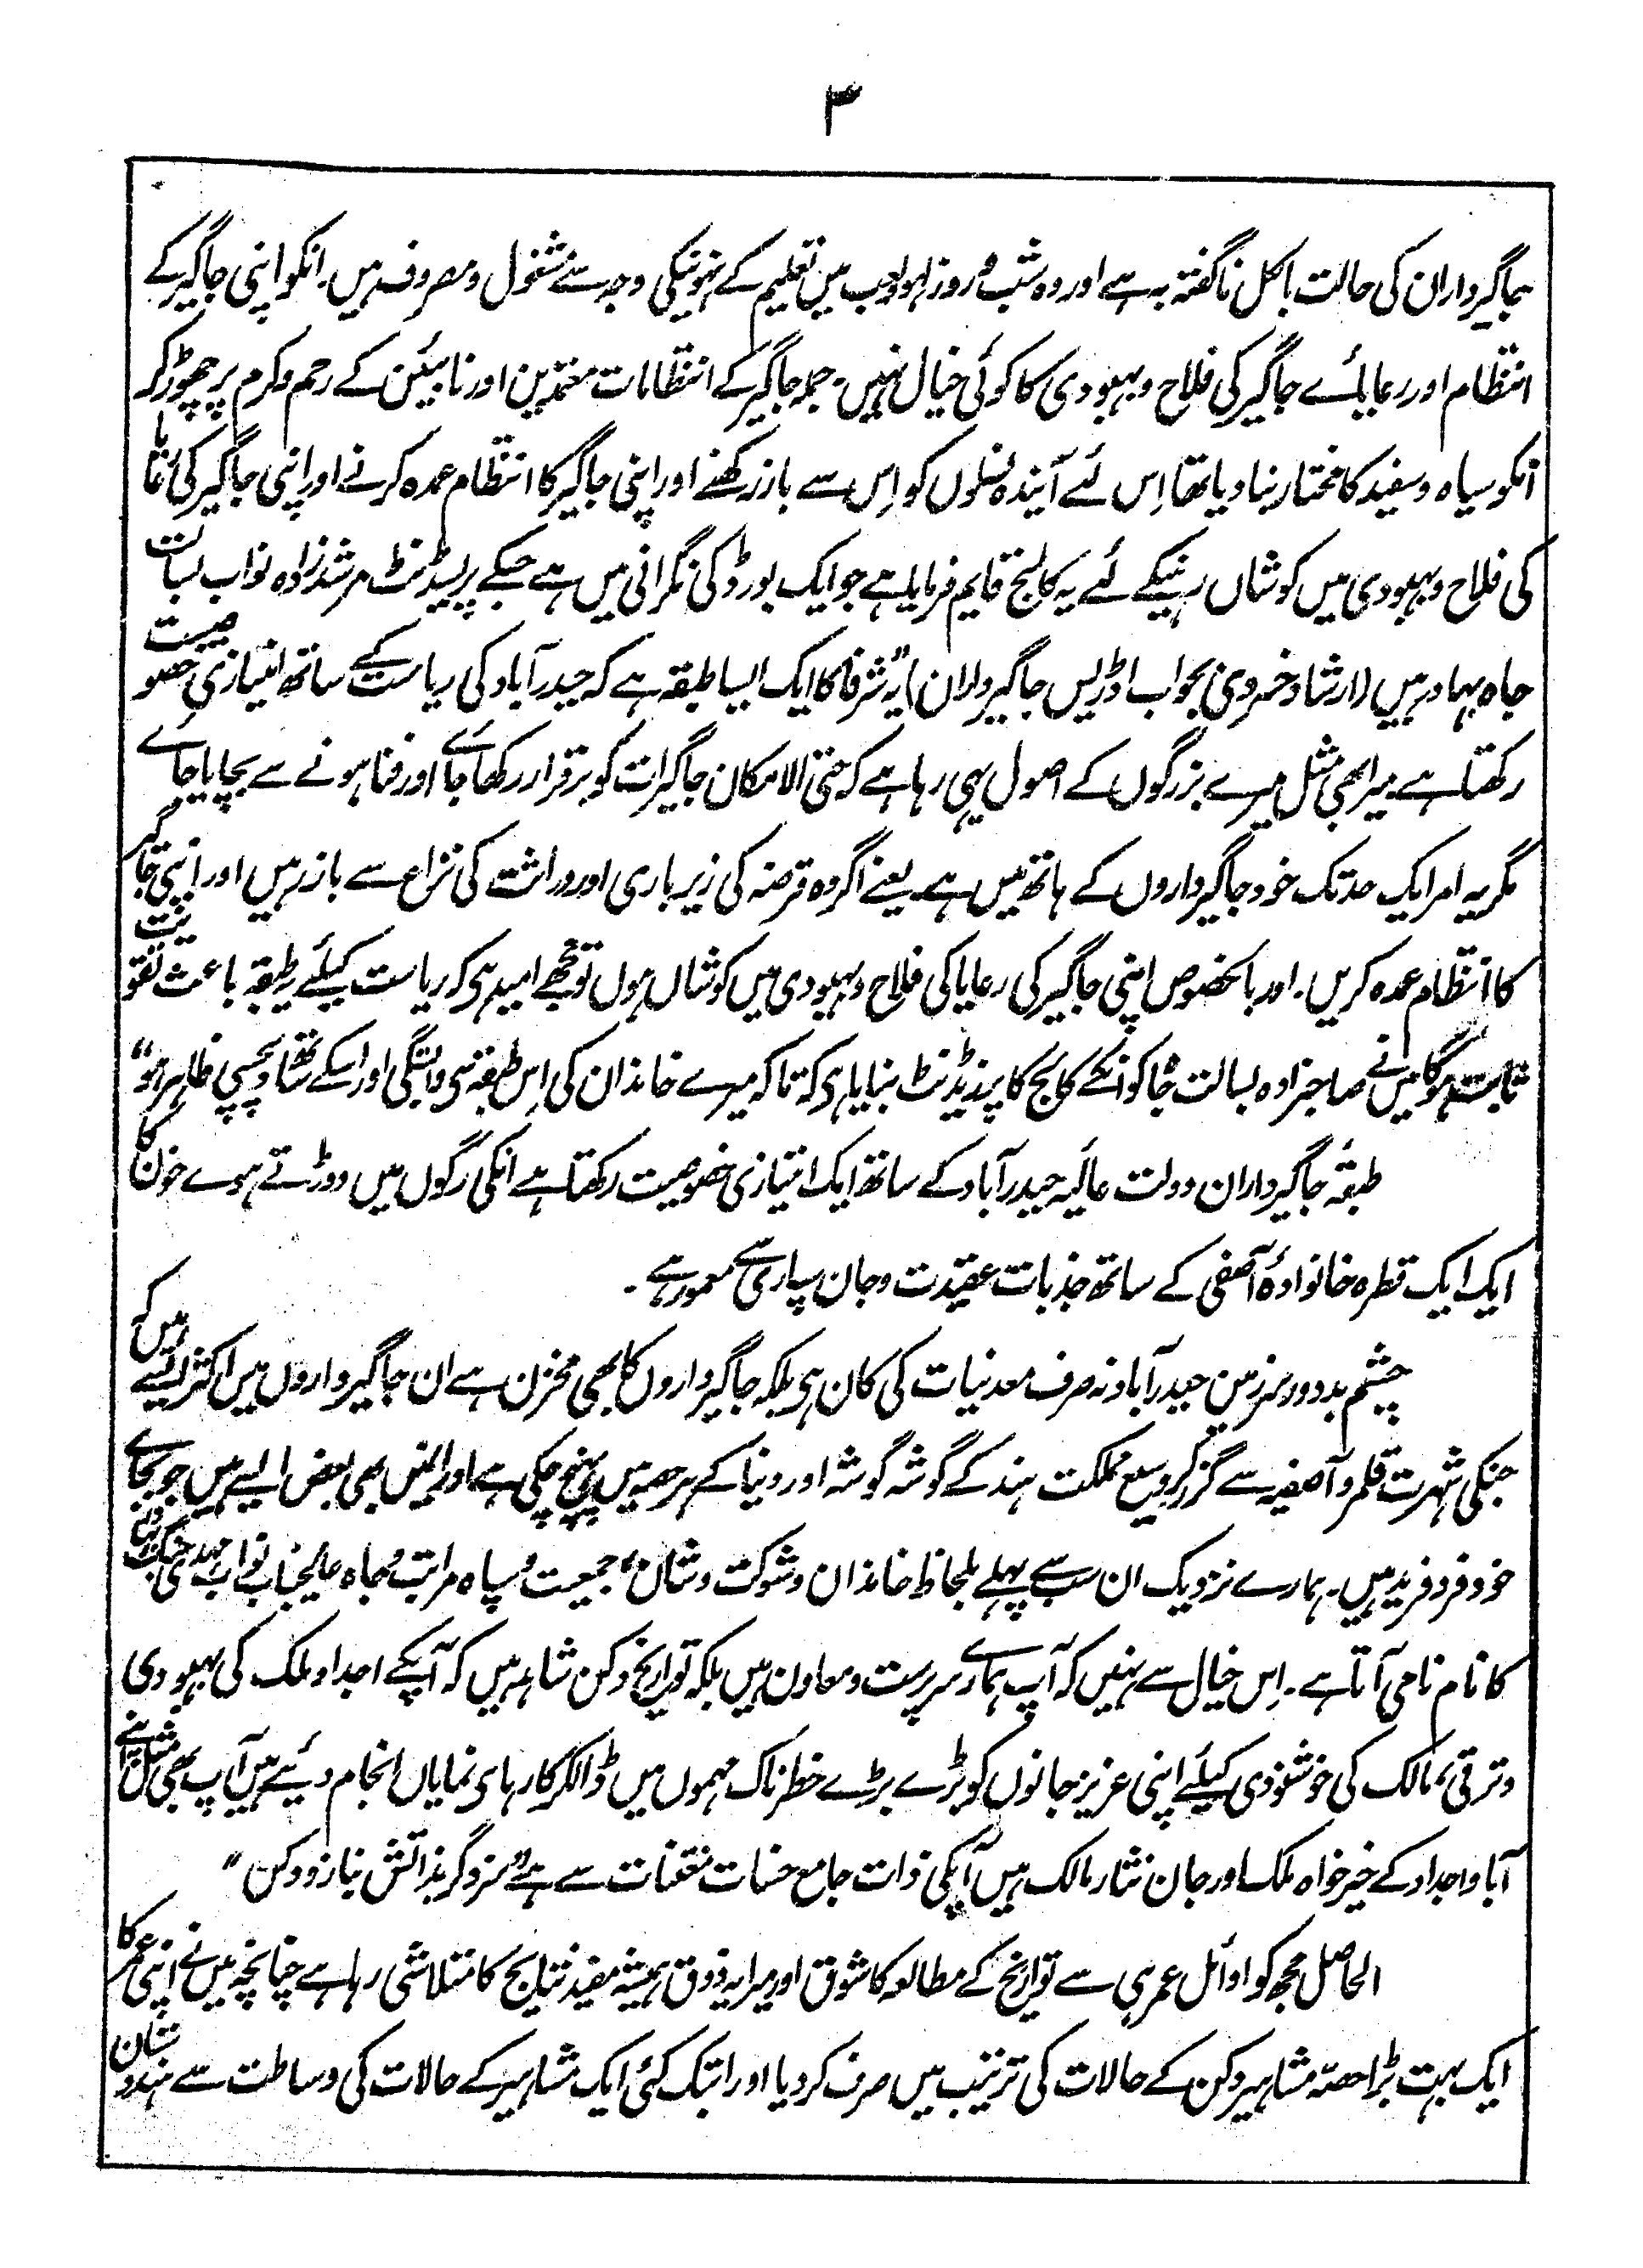 ۳
جاگیرداران کی حالت بالکل ناگفتہ بہ ہے اور وہ شب و روز لہو لعب میں تعلیم کے نہونیکی وجہ سے مشغول و مصروف ہیں۔ انکو اپنی جاگیر کے
انتظام اور رعایائے جاگیر کی فلاح و بہبودی کا کوئی خیال نہیں۔ جملہ جاگیر کے انتظامات معتمدین اور نائبین کے رحم و کرم پر چھوڑ کر
انکو سیاہ و سفید کا مختار بنا دیا تھا اِس لئے آیندہ نسلوں کو اِس سے باز رکھنے اور اپنی جاگیر کا انتظام عمدہ کرنے اور اپنی جاگیر کی رعایا
کی فلاح و بہبودی میں کوشاں رہنیکے لئے یہ کالج قایم فرمایا ہے جو ایک بورڈ کی نگرانی میں ہے جسکے پریسیڈنٹ مرشدزادہ نواب بسالت
جاہ بہادر ہیں (ارشاد خسروی بجواب اڈریس جاگیرداران) "یہ شرفا کا ایک ایسا طبقہ ہے کہ حیدرآباد کی ریاست کے ساتھ امتیازی خصوصیت
رکھتا ہے میرا بھی مثل میرے بزرگوں کے اصول یہی رہا ہے کہ حتی الامکان جاگیرات کو برقرار رکھا جاے اور فنا ہونے سے بچایا جاے
مگر یہ امر ایک حد تک خود جاگیرداروں کے ہاتھ میں ہے۔ یعنے اگر وہ قرضہ کی زیر باری اور وراثت کی نزاع سے باز رہیں اور اپنی جاگیر
کا انتظام عمدہ کریں۔ اور بالخصوص اپنی جاگیر کی رعایا کی فلاح و بہبودی میں کوشاں ہوں تو مجھے امید ہی کہ ریاست کیلئے یہ طبقہ باعث تقویت
ثابت ہوگا میں نے صاحبزادہ بسالت جاہ کو انکے کالج کا پریذیڈنٹ بنایا ہی کہ تا کہ میرے خاندان کی اِس طبقہ سی وابستگی اور اسکے ساتھ دلچسپی ظاہر ہو"
طبقۂ جاگیرداران دولت عالیہ حیدرآباد کے ساتھ ایک امتیازی خصوصیت رکھتا ہے انکی رگوں میں دوڑتے ہوے خون کا
ایک ایک قطرہ خانوادۂ آصفی کے ساتھ جذبات عقیدت و جان سپاری سے معمور ہے۔
چشم بد دور سرزمین حیدرآباد نہ صرف معدنیات کی کان ہی بلکہ جاگیرداروں کا بھی مخزن ہے ان جاگیرداروں میں اکثر ایسے ہیں کہ
جنکی شہرت قلمرو آصفیہ سے گزر کر وسیع مملکت ہند کے گوشہ گوشہ اور دنیا کے ہر حصہ میں پہنچ چکی ہے اور انمیں بھی بعض ایسے ہیں جو بجاے
خود فرد فرید ہیں۔ ہمارے نزدیک ان سب سے پہلے بلحاظ خاندان و شوکت و شان، جمعیت و سپاہ مراتب و جاہ عالیجناب نواب مہدی جنگ بہادر
کا نام نامی آتا ہے۔ اِس خیال سے نہیں کہ آپ ہمارے سرپرست و معاون ہیں بلکہ تواریخ دکن شاہد ہیں کہ آپکے اجداد ملک کی بہبودی
و ترقی، مالک کی خوشنودی کیلئے اپنی عزیز جانوں کو بڑے بڑے خطرناک مہموں میں ڈالکر کارہای نمایاں انجام دئیے ہیں آپ بھی مثل اپنے
آبا و اجداد کے خیر خواہ ملک اور جان نثار مالک ہیں آپکی ذات جامع حسنات سے ہے "سزد گر بذاتش نیازد دکن"
الحاصل مجھ کو اوائل عمر ہی سے تواریخ کے مطالعہ کا شوق اور میرا یہ ذوق ہمیشہ مفید نتایج کا متلاشی رہا ہے چنانچہ میں نے اپنی عمر کا
ایک بہت بڑا حصّہ مشاہیر دکن کے حالات کی ترتیب میں صرف کر دیا اور ابتک کئی ایک مشاہیر کے حالات کی وساطت سے ہندوستان